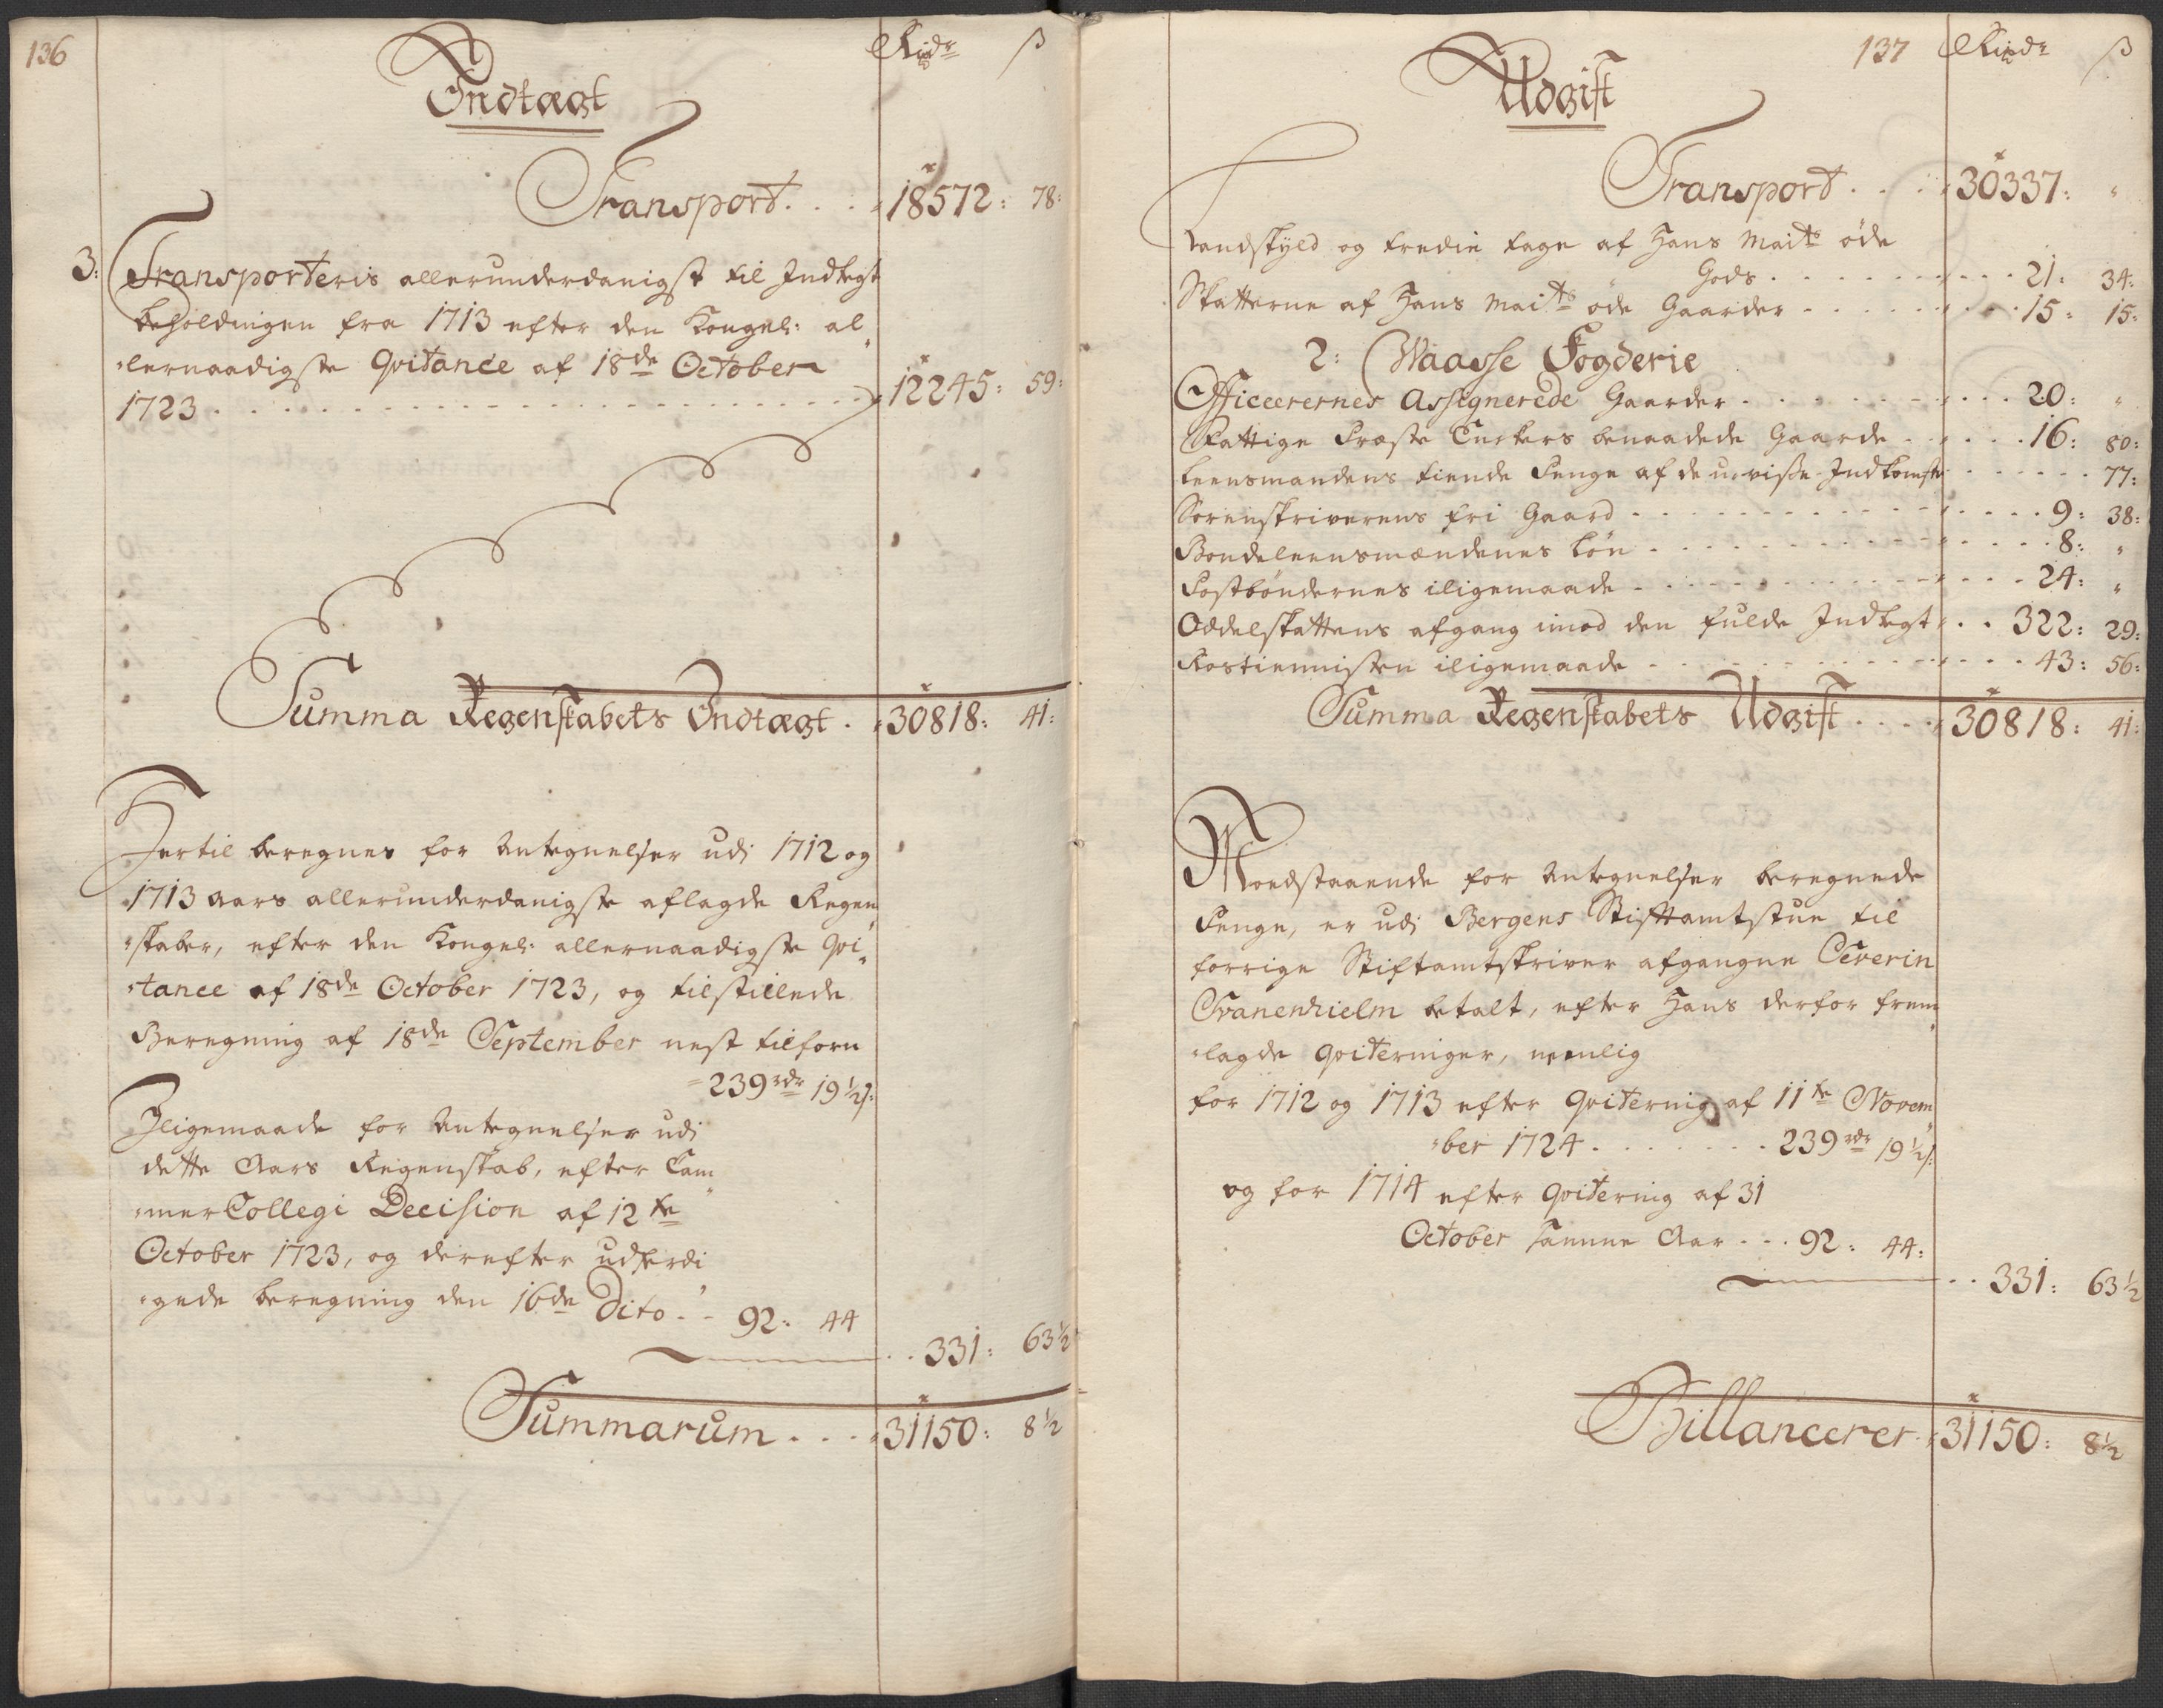 136
Rixdr ß
Indtægt
Transport . . . 18572: 78:
3: Transporteris allerunderdanigst til Indtegt
beholdingen fra 1713 efter den Kongel: al„
„lernaadigste Qvitance af 18de October
1723 . . . . . . 12245: 59:
Summa Regenskabets Indtægt . 30818: 41:
Hertil beregnes for Antegnelser udi 1712 og
1713 Aars allerunderdanigste aflagde Regen„
„skaber, efter den Kongel: allernaadigste Qvi„
„tance af 18de October 1723, og tilstillede
Beregning af 18de September nest tilforn
239 rdr 19½ ß:
Iligemaade for Antegnelser udi
dette Aars Regenskab, efter Cam„
„mer Collegi Decision af 12te
October 1723, og derefter udferdi„
„gede beregning den 16de Dito . . 92: 44
. . 331: 63½
Summarum . . . 31150: 8½
137 Rixdr ß
Udgift
Transport . . . 30337: „
Landskyld og tredie tage af Hans Maits öde
Gods . . . . . 21: 34:
Skatterne af Hans Maits öde Gaarder . . . . . 15: 15:
2: Waasse Fogderie
Officerernes Assignerede Gaarder . . . . . 20: „
Fattige Præste Enckers benaadede Gaarde . . . . 16: 80:
Leensmandens tiende Penge af de u-visse Indkomster . . . . 77:
Sorenskriverens fri Gaard . . . . . 9: 38:
Bondeleensmændenes lön . . . . . 8: „
Postböndernes iligemaade . . . . . 24: „
Oddelskattens afgang imod den fulde Indtegt . . 322: 29:
Rostiennisten iligemaade . . . . . 43: 56:
Summa Regenskabets Udgift . . . . 30818: 41:
Modstaaende for Antegnelser beregnede
Penge, er udi Bergens Stiftamtstue til
forrige Stiftamtskriver afgangne Severin
Svanenhielm betalt, efter Hans derfor frem„
„lagde Qviteringer, nemlig
for 1712 og 1713 efter Qvitering af 11te Novem„
„ber 1724 . . . . . . . 239 rdr 19½ ß:
og for 1714 efter Qvitering af 31
October samme Aar . . . 92: 44:
. . 331: 63½
Billancerer 31150: 8½